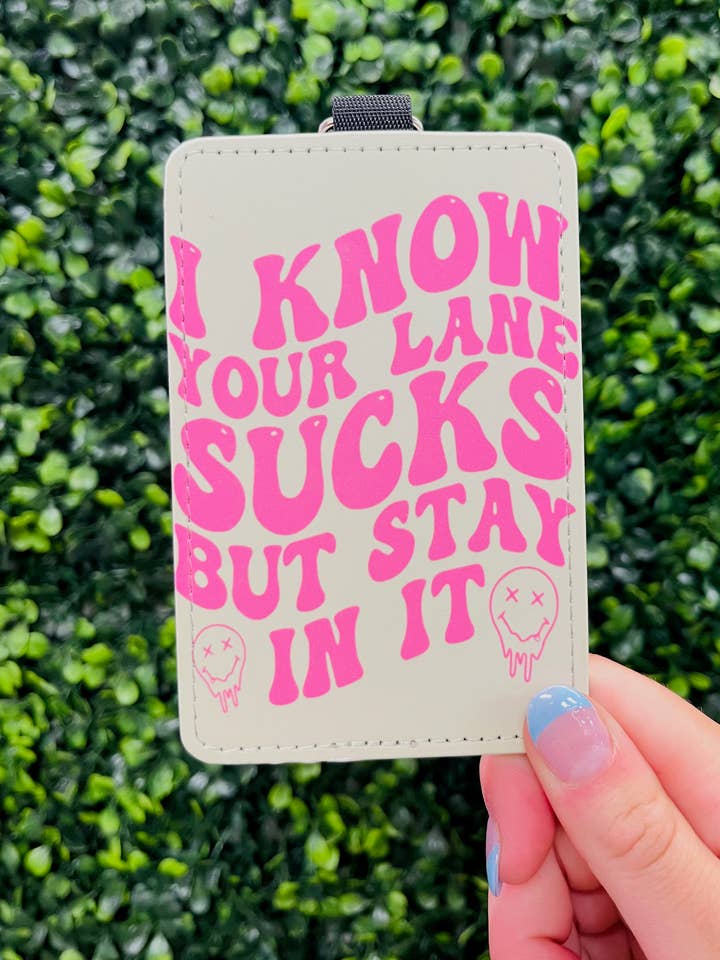 I KNOW
YOUR LANE
SUCKS
BUT STAY
IN IT